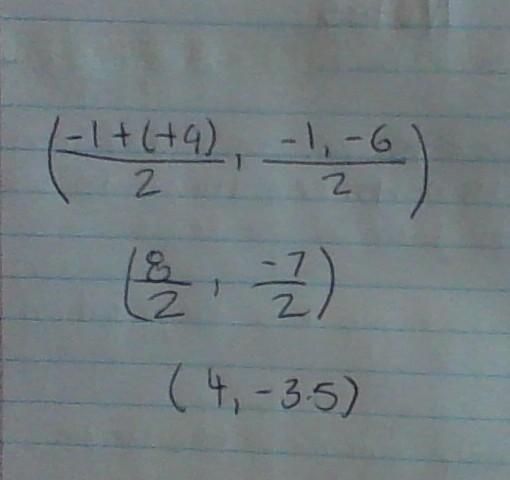 (-1+(+9)/2, -1,-6/2)
(8/2, -7/2)
(4, -3.5)